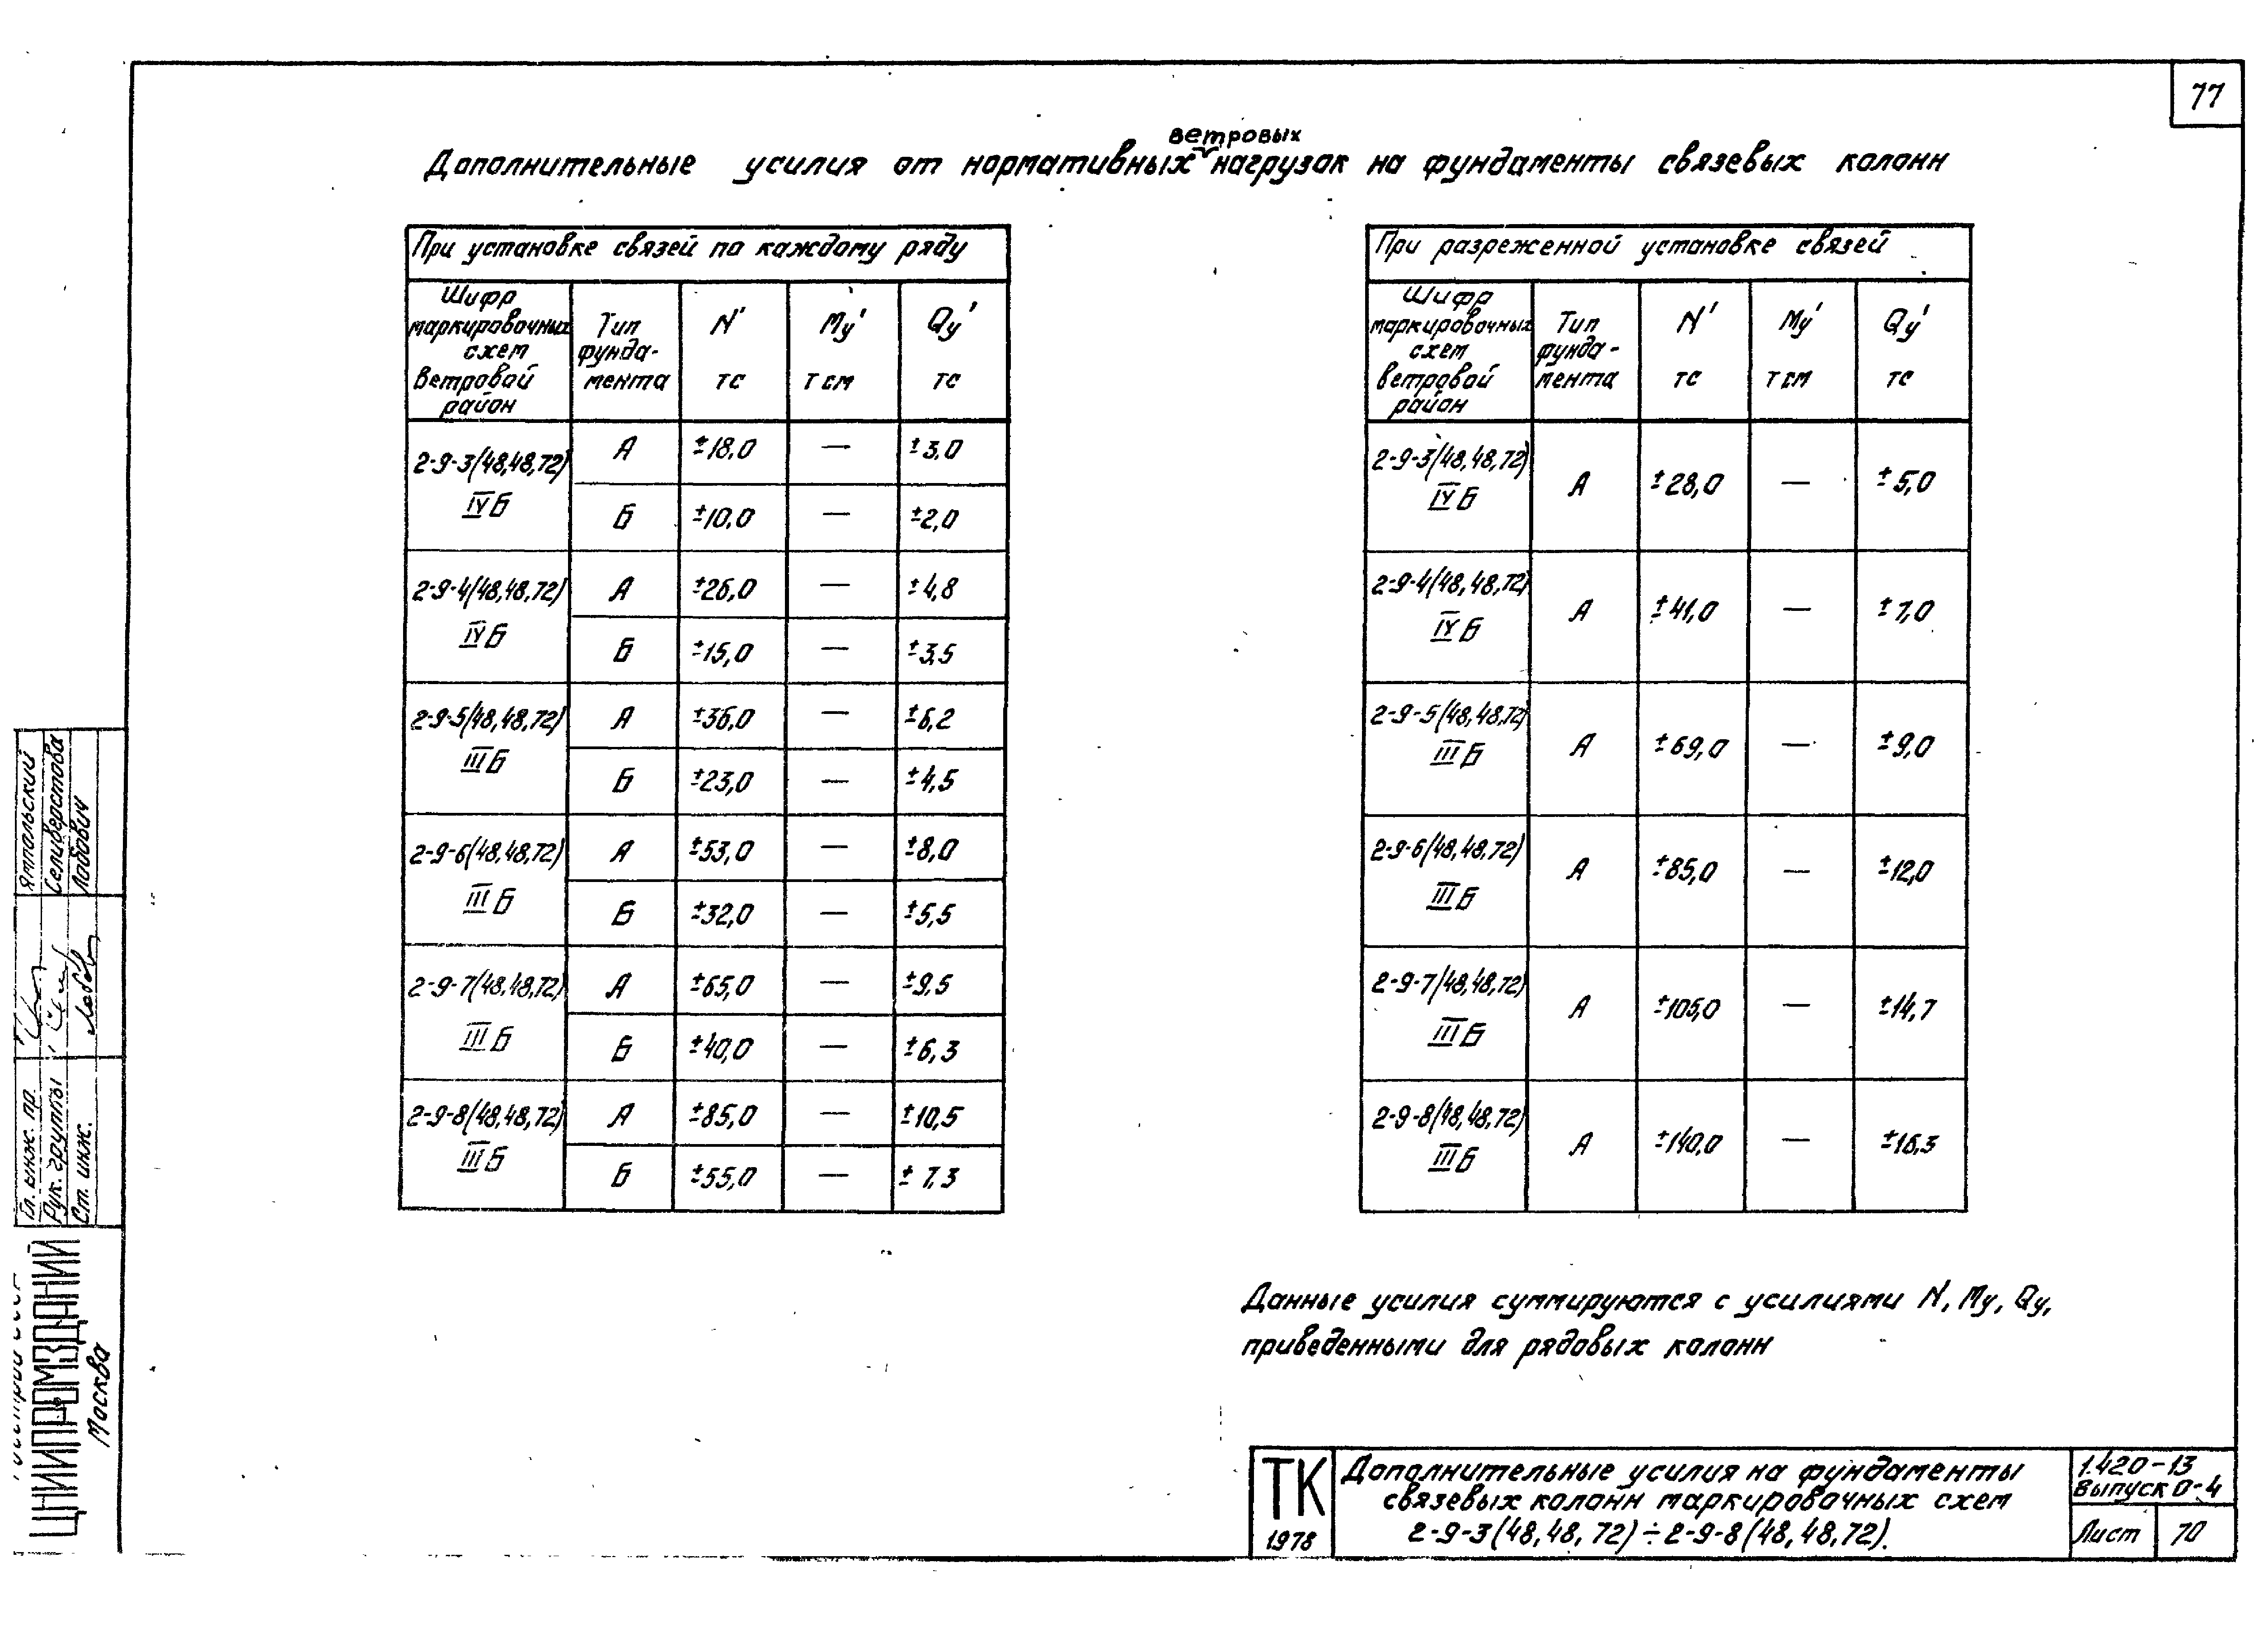 77
ветровых
Дополнительные усилия от нормативных нагрузок на фундаменты связевых колонн
При установке связей по каждому ряду
Шифр маркировочных схем Ветровой район | Тип фунда-мента | N' тс | My' тсм | Qy' тс
2-9-3(48,48,72) IVБ | А | ±18,0 | — | ±3,0
Б | ±10,0 | — | ±2,0
2-9-4(48,48,72) IVБ | А | ±26,0 | — | ±4,8
Б | ±15,0 | — | ±3,5
2-9-5(48,48,72) IIIБ | А | ±36,0 | — | ±6,2
Б | ±23,0 | — | ±4,5
2-9-6(48,48,72) IIIБ | А | ±53,0 | — | ±8,0
Б | ±32,0 | — | ±5,5
2-9-7(48,48,72) IIIБ | А | ±65,0 | — | ±9,5
Б | ±40,0 | — | ±6,3
2-9-8(48,48,72) IIIБ | А | ±85,0 | — | ±10,5
Б | ±55,0 | — | ±7,3
При разреженной установке связей
Шифр маркировочных схем ветровой район | Тип фунда-мента | N' тс | My' тсм | Qy' тс
2-9-3(48,48,72) IVБ | А | ±28,0 | — | ±5,0
2-9-4(48,48,72) IVБ | А | ±41,0 | — | ±7,0
2-9-5(48,48,72) IIIБ | А | ±69,0 | — | ±9,0
2-9-6(48,48,72) IIIБ | А | ±85,0 | — | ±12,0
2-9-7(48,48,72) IIIБ | А | ±105,0 | — | ±14,7
2-9-8(48,48,72) IIIБ | А | ±140,0 | — | ±16,3
Данные усилия суммируются с усилиями N, My, Qy,
приведенными для рядовых колонн
ТК
1978
Дополнительные усилия на фундаменты
связевых колонн маркировочных схем
2-9-3(48,48,72)÷2-9-8(48,48,72).
1.420-13
Выпуск 0-4
Лист 70
Гл. инж. пр. Ямпольский
Рук. группы Селиверстова
Ст. инж. Лобович
ЦНИИПРОМЗДАНИЙ
Москва